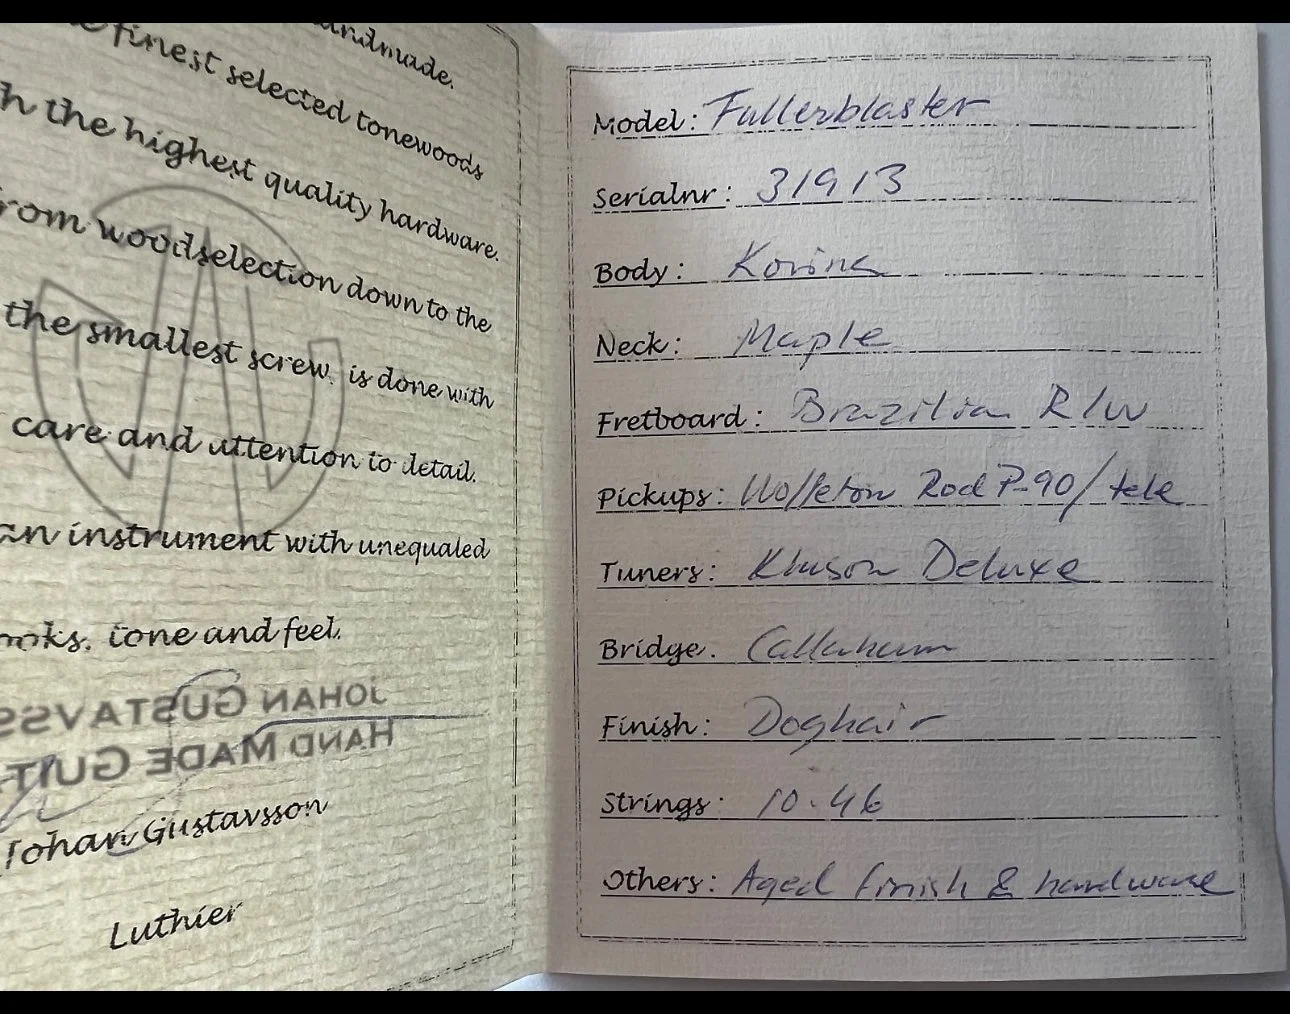 andmade.
e finest selected tonewoods
h the highest quality hardware.
rom woodselection down to the
the smallest screw, is done with
care and attention to detail.
an instrument with unequaled
ooks, tone and feel.
JOHAN GUSTAVSS
HAND MADE GUIT
Johan Gustavsson
Luthier
Model: Fullerblaster
Serialnr: 31913
Body: Korina
Neck: Maple
Fretboard: Brazilian R/W
Pickups: Wolfetone Rod P-90/tele
Tuners: Kluson Deluxe
Bridge: Callaham
Finish: Doghair
Strings: 10-46
Others: Aged finish & hardware